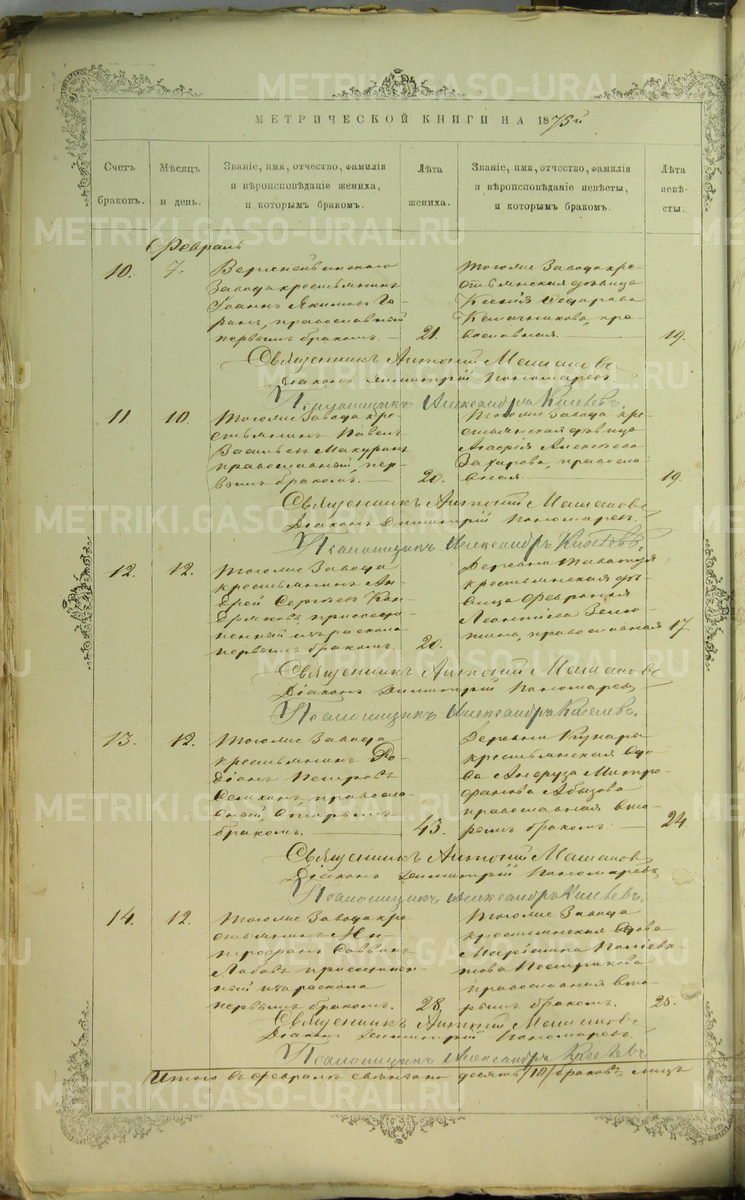 МЕТРИЧЕСКОЙ КНИГИ НА 1875й
Счетъ браковъ.
Мѣсяцъ и день.
Званіе, имя, отчество, фамилія и вѣроисповѣданіе жениха, и которымъ бракомъ.
Лѣта жениха.
Званіе, имя, отчество, фамилія и вѣроисповѣданіе невѣсты, и которымъ бракомъ.
Лѣта невѣсты.
Февраль
10.
7.
Верхнейвинскаго
Завода крестьянинъ
Іоаннъ Якимовъ
православный
первымъ бракомъ.
21.
Тогоже Завода кре-
стьянская дѣвица
Ксенія Ѳедорова
Калачникова, пра-
вославная.
19.
Священникъ Антоній Машановъ
Діаконъ Димитрій Пономаревъ
Псаломщикъ Александръ Киселевъ.
11.
10.
Тогоже Завода кре-
стьянинъ Павелъ
Васильевъ Макуринъ
православный, пер-
вымъ бракомъ.
20.
Тогоже Завода кре-
стьянская дѣвица
Алексѣева
Захарова, правосла-
вная
19.
Священникъ Антоній Машановъ
Діаконъ Димитрій Пономаревъ.
Псаломщикъ Александръ Киселевъ.
12.
12.
Тогоже Завода
крестьянинъ Ан-
дрей Сергѣевъ Кон-
дрюковъ, присоеди-
ненный изъ раскола
первымъ бракомъ.
20.
Деревни Таватуя
крестьянская дѣ-
вица Февронія
Леонтіева
православная
17.
Священникъ Антоній Машановъ
Діаконъ Димитрій Пономаревъ
Псаломщикъ Александръ Киселевъ.
13.
12.
Тогоже Завода
крестьянинъ Ро-
діонъ Петровъ
правосла-
вный, вторымъ
бракомъ.
43.
Деревни Кунары
крестьянская вдо-
ва Митро-
фанова Абызова
православная вто-
рымъ бракомъ
24
Священникъ Антоній Машановъ
Діаконъ Димитрій Пономаревъ
Псаломщикъ Александръ Киселевъ.
14.
12.
Тогоже Завода кре-
стьянинъ Ми-
трофанъ Саввинъ
присоединен-
ный изъ раскола
первымъ бракомъ.
28.
Тогоже Завода
крестьянская вдова
Пастухова
православная вто-
рымъ бракомъ.
25.
Священникъ Антоній Машановъ
Діаконъ Димитрій Пономаревъ
Псаломщикъ Александръ Киселевъ
Итого въ Февралѣ свѣнчано десять /10/ браковъ, лицъ
METRIKI.GASO-URAL.RU